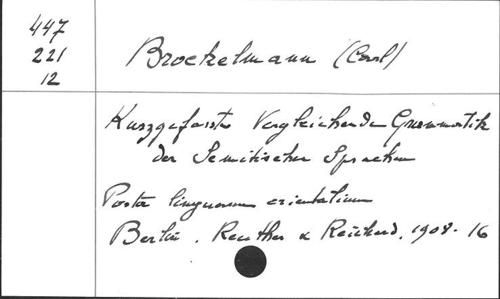 447
221
12
Brockelmann (Carl)
Kurzgefasste Vergleichende Grammatik
der Semitischen Sprachen
Porta linguarum orientalium
Berlin, Reuther & Reichard, 1908-16